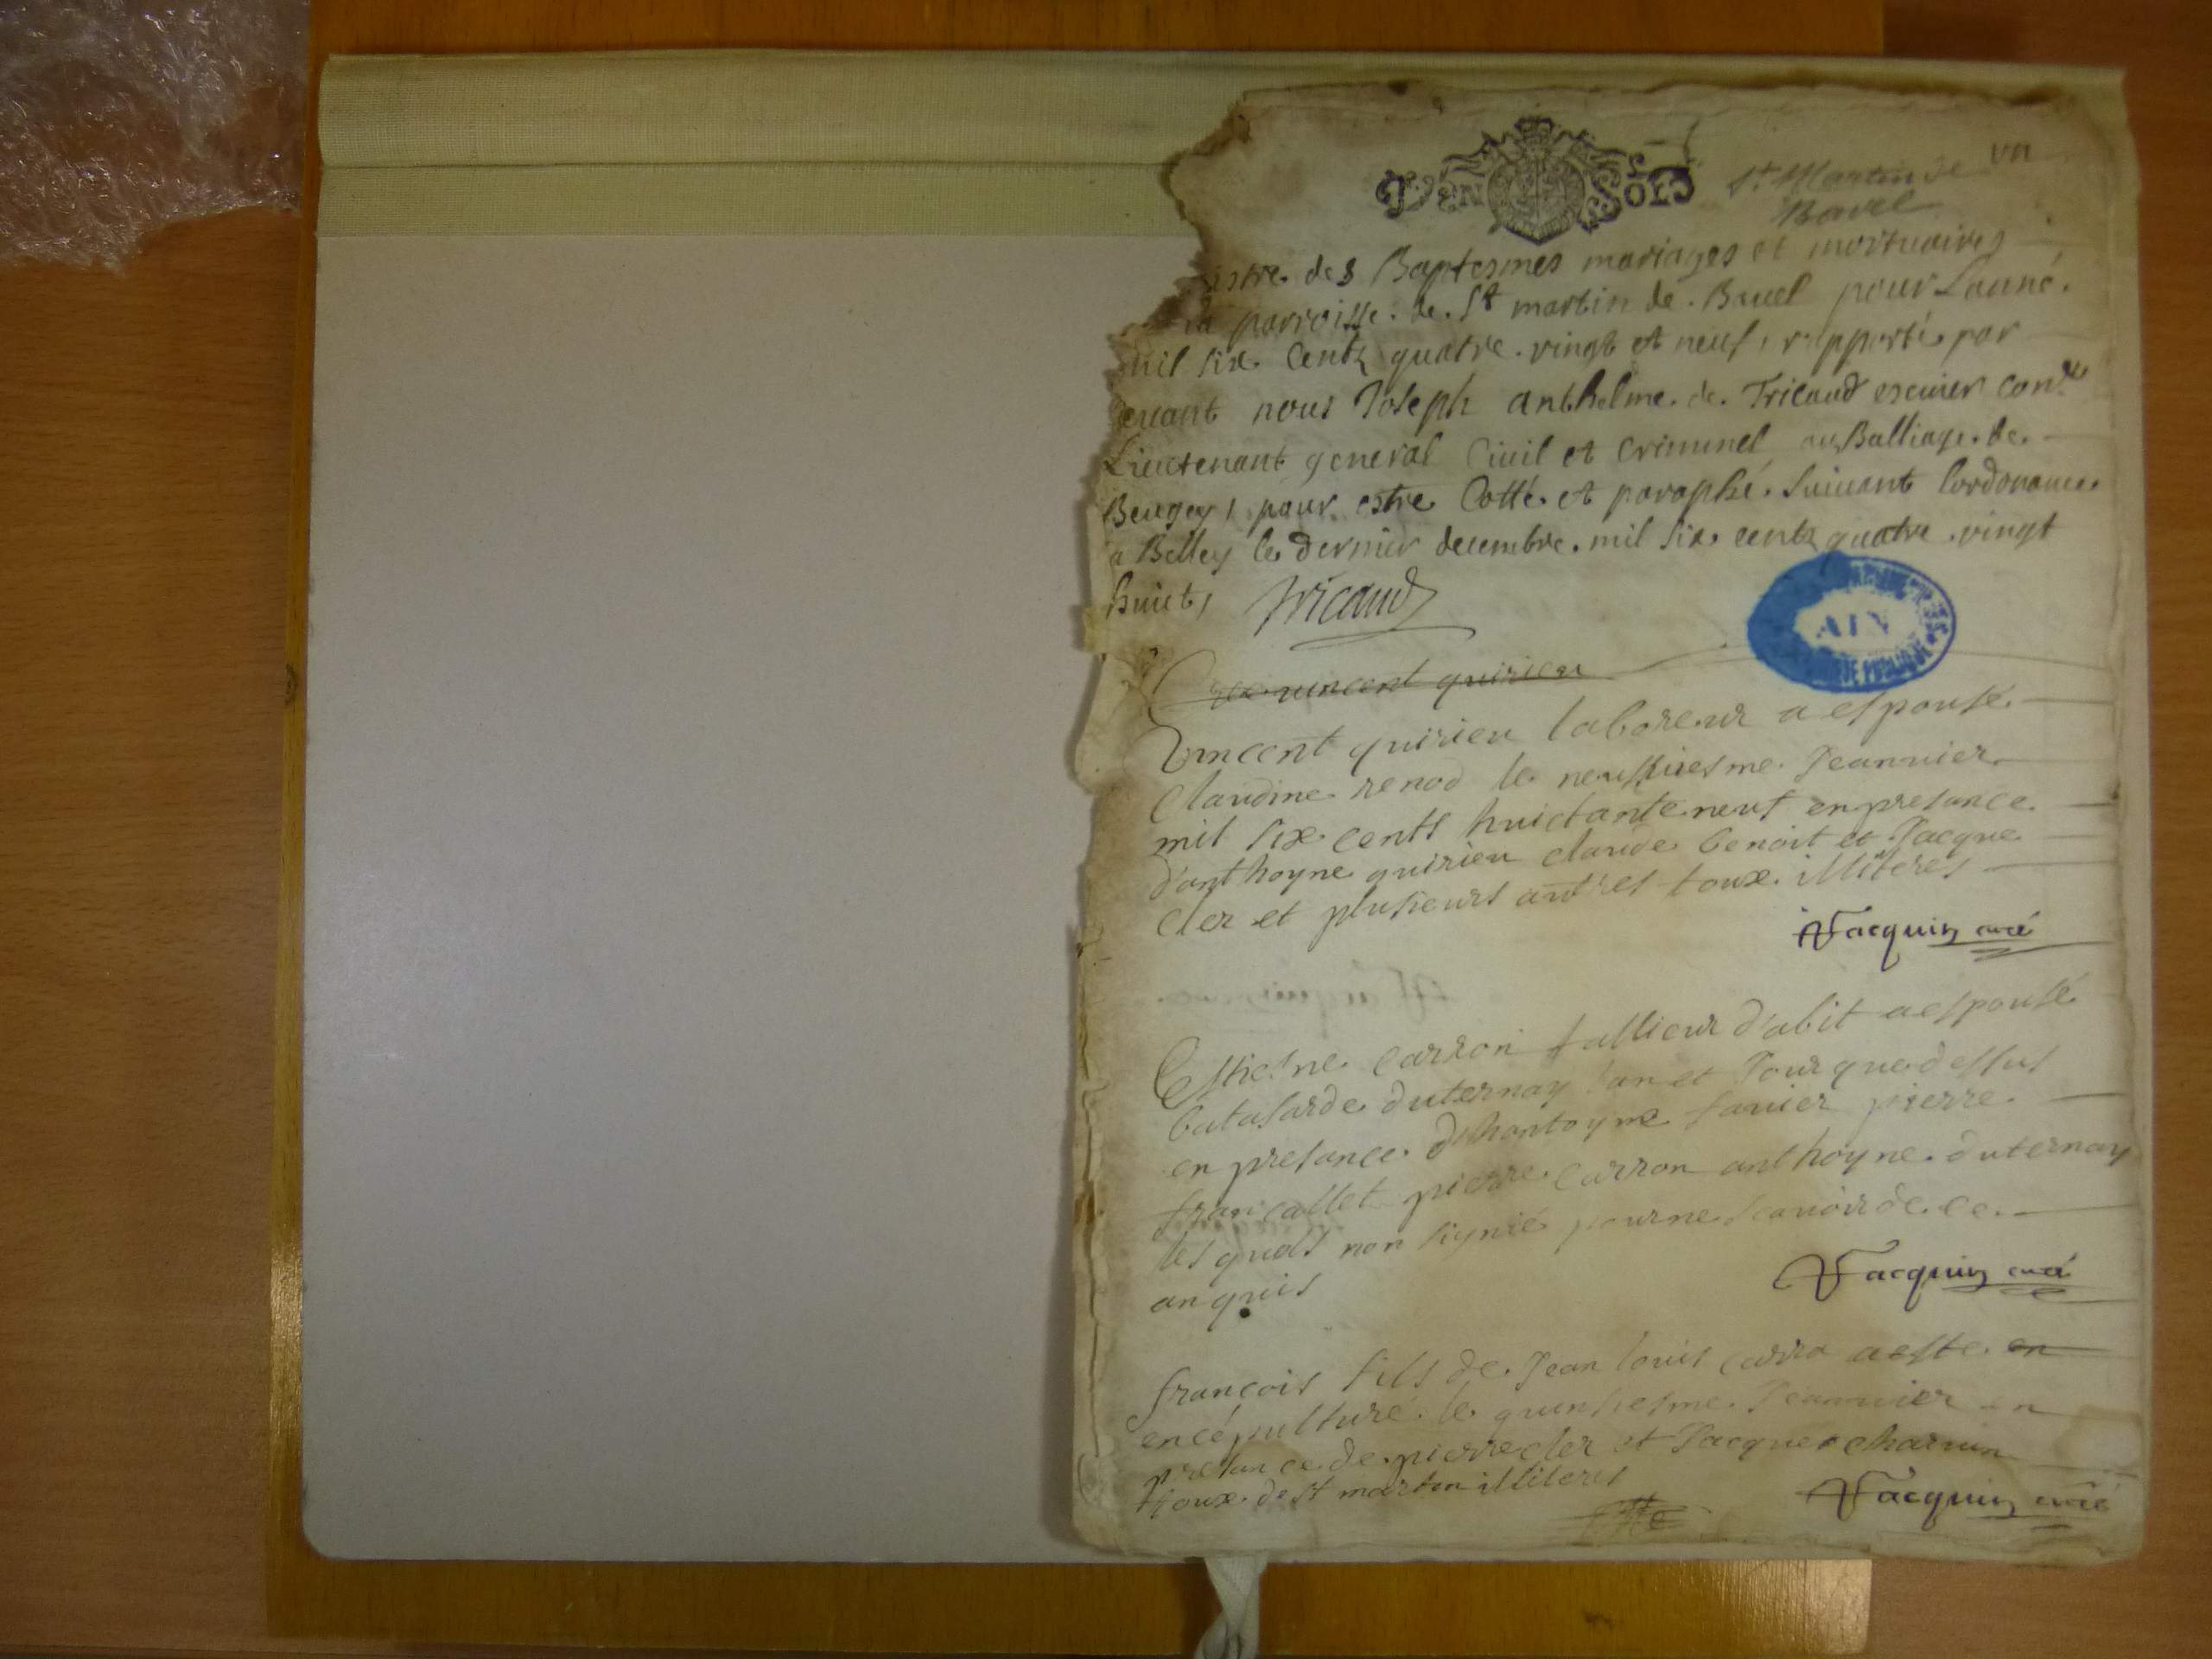 St. Martin de
Bavel
VN SOLS
istre des Baptesmes mariages et mortuaires
la parroisse de St martin de Bauel pour Lanné
mil six Centz quatre vingt et neuf, rapporté par
deuant nous Joseph anthelme de Tricaud escuier conler
Lieutenant general Ciuil et criminel au Balliage de
Beugey, pour estre Cotté et paraphé suiuant lordonance
a Belley le dernier decembre mil six centz quatre vingt
huict, Tricaud
AIN
vincent quirieu
Vincent quirieu laboreur a espousé
Claudine renod le neufuiesme Jeanuier
mil six cents huictante neuf en presance
d'anthoyne quirieu claude benoit et Jacque
cler et plusieurs autres toux illiteres
Jacquin curé
Estiesne Carron tallieur d'abit a espousé
batasarde duternay lan et Jour que dessus
en presance danthoyne tauier pierre
francallet pierre carron anthoyne duternay
lesquels non signié pour ne scauoir de ce
anquis
Jacquin curé
françois fils de Jean louis carra a esté en
encépulturé le quinsiesme Jeanuier en
presance de pierre cler et Jacque charuin
toux de st martin illiteres
Jacquin curé